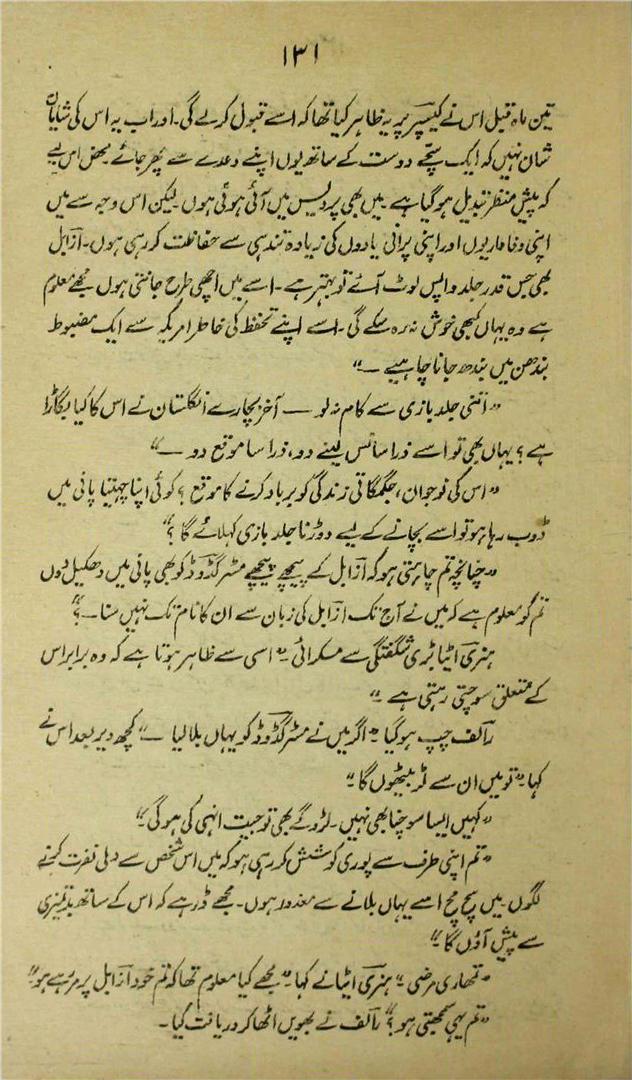 ۱۳۱
تین ماہ قبل اس نے کیسپر پر یہ ظاہر کیا تھا کہ اسے قبول کرلے گی۔ اور اب یہ اس کی شایان
شان نہیں کہ ایک سچّے دوست کے ساتھ یوں اپنے وعدے سے پھر جائے محض اس لیے
کہ پیش منظر تبدیل ہوگیا ہے۔ میں بھی پردیس میں آئی ہوئی ہوں لیکن اس وجہ سے میں
اپنی وفاداریوں اور اپنی پرانی یادوں کی زیادہ تندہی سے حفاظت کر رہی ہوں۔ ازابل
بھی جس قدر جلد واپس لوٹ آئے تو بہتر ہے۔ اسے میں اچھی طرح جانتی ہوں مجھے معلوم
ہے وہ یہاں کبھی خوش نہ رہ سکے گی۔ اسے اپنے تحفظ کی خاطر امریکہ سے ایک مضبوط
بندھن میں بندھ جانا چاہیے ــ"
"اتنی جلد بازی سے کام نہ لو ــ آخر بچارے انگلستان نے اس کا کیا بگاڑا
ہے؟ یہاں بھی تو اسے ذرا سانس لینے دو، ذرا سا موقع دو ــ"
"اس کی نوجوان، جگمگاتی زندگی کو برباد کرنے کا موقع؟ کوئی اپنا چہیتا پانی میں
ڈوب رہا ہو تو اسے بچانے کے لیے دوڑنا جلد بازی کہلائے گا؟"
"چنانچہ تم چاہتی ہو کہ ازابل کے پیچھے پیچھے مسٹر گڈوڈ کو بھی پانی میں دھکیل دوں
تم کو معلوم ہے کہ میں نے آج تک ازابل کی زبان سے ان کا نام تک نہیں سنا ــ؟"
ہنری اٹیا بڑی شگفتگی سے مسکرائی۔ "اسی سے ظاہر ہوتا ہے کہ وہ برابر اس
کے متعلق سوچتی رہتی ہے۔"
رالف چپ ہوگیا۔ "اگر میں نے مسٹر گڈوڈ کو یہاں بلا لیا ــ" کچھ دیر بعد اس نے
کہا۔ "تو میں ان سے لڑ بیٹھوں گا۔"
"کہیں ایسا سوچنا بھی نہیں۔ لڑوگے بھی تو جیت انہی کی ہوگی۔"
"تم اپنی طرف سے پوری کوشش کر رہی ہو کہ میں اس شخص سے دلی نفرت کرنے
لگوں۔ میں سچ مچ اسے یہاں بلانے سے معذور ہوں۔ مجھے ڈر ہے کہ اس کے ساتھ بدتمیزی
سے پیش آؤں گا۔"
"تمھاری مرضی۔" ہنری اٹیا نے کہا۔ "مجھے کیا معلوم تھا کہ تم خود ازابل پر مر رہے ہو۔"
"تم یہی سمجھتی ہو؟" رالف نے بھویں اٹھا کر دریافت کیا۔